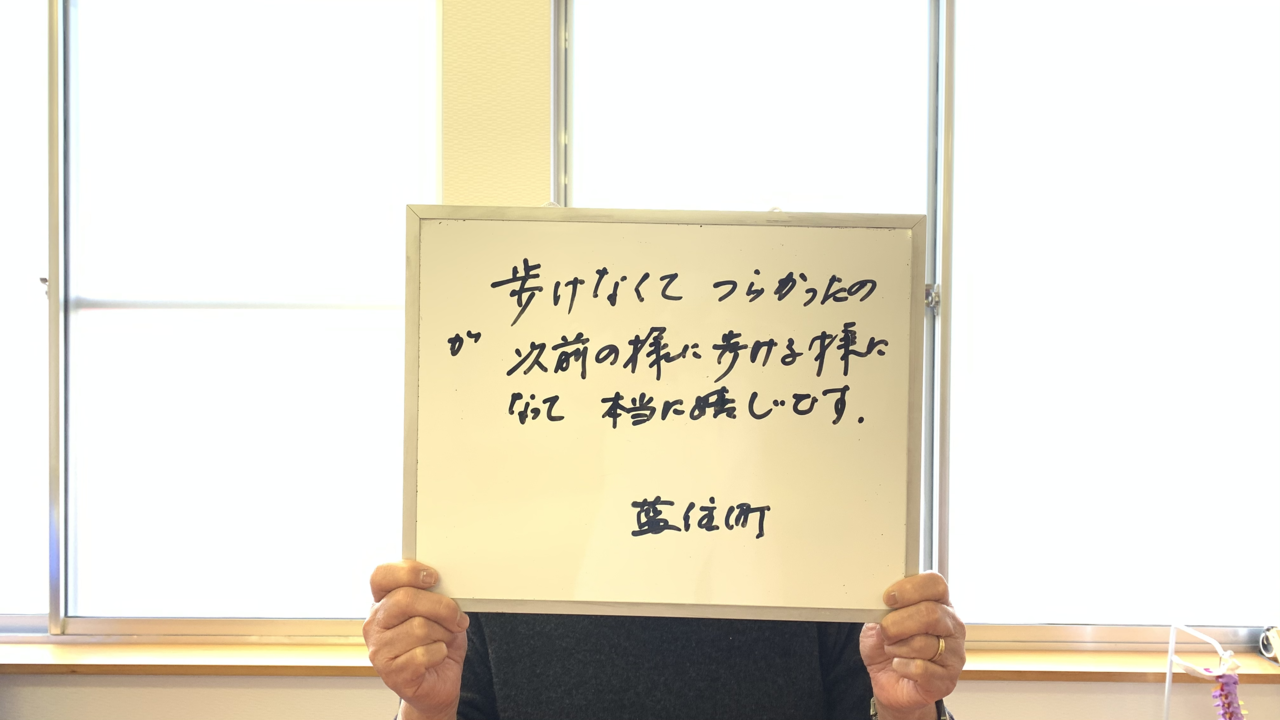 歩けなくて つらかったの
が 次前の様に歩ける様に
なって 本当に嬉しじです.
藍住町